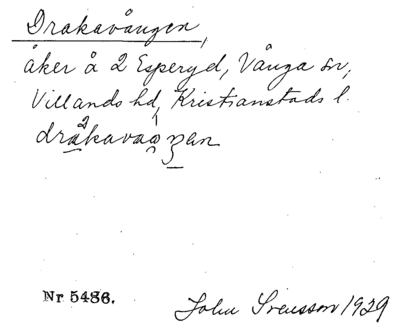 Drakavången,
åker å 2 Esperyd, Vånga sn,
Villands hd, Kristianstads l.
Nr 5486.
John Svensson 1929